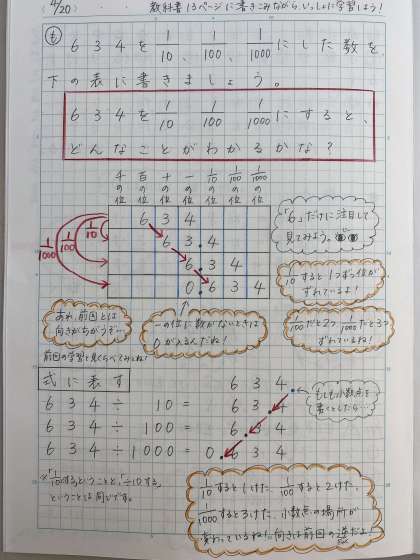 4/20 教科書13ページに書きこみながら、いっしょに学習しよう!
も 634を1/10、1/100、1/1000にした数を、
下の表に書きましょう。
634を1/10 1/100 1/1000にすると、
どんなことがわかるかな?
千の位 百の位 十の位 一の位 1/10の位 1/100の位 1/1000の位
634
63.4
6.34
0.634
1/10
1/100
1/1000
「6」だけに注目して
見てみよう。
1/10すると1つずつ位が
ずれているよ!
1/100だと2つ 1/1000だと3つ
ずれているね!
あれ、前回とは
向きがちがうぞ…
前回の学習と見くらべてみよね!
一の位に数がないときは
0が入るんだね!
式に表す
634÷10=63.4
634÷100=6.34
634÷1000=0.634
634.
もしも小数点を
書くとしたら…
※「1/10する」ということと、「÷10する」
ということは同じです。
1/10すると1けた、1/100すると2けた、
1/1000すると3けた、小数点の場所が
変わっているね!向きは前回の逆だよ